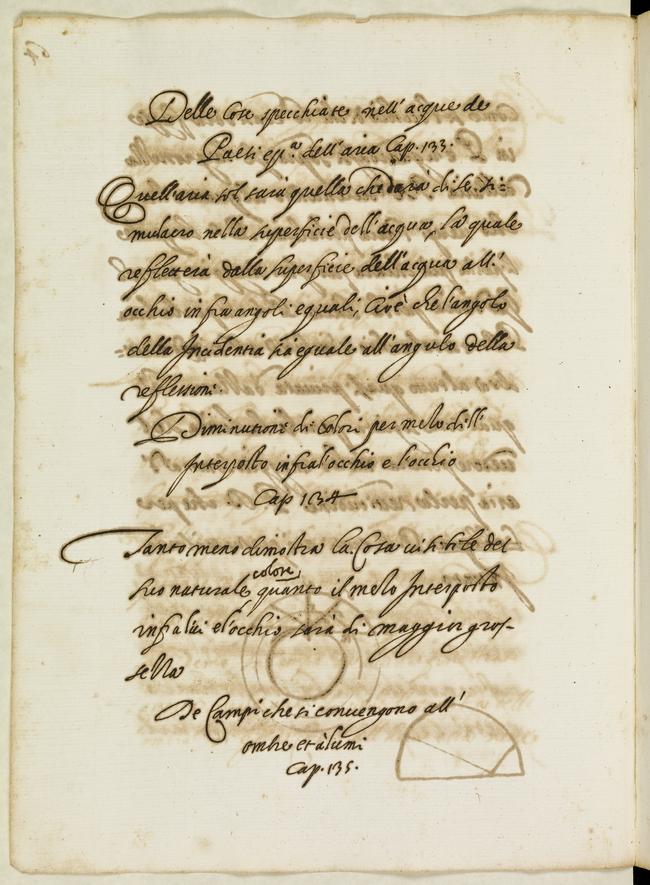 Delle Cose specchiate nell'acque de
Paesi e p.ª dell'aria Cap. 133.
Quell'aria sol sara quella che dara di se si=
mulacro nella superficie dell'acqua, la quale
reflettera dalla superficie dell'acqua all'
occhio infra angoli eguali, cioè che l'angolo
della Incidentia sia eguale all'angulo della
reflessione.
Diminutione di Colori per mezo dell'
Interposto infra l'occhio e l'occhio
Cap 134
Tanto meno dimostra la Cosa visibile del
suo naturale colore quanto il mezo Interposto
infra lei e l'occhio sara di maggior gros-
sezza
De Campi che si convengono all'
ombre et à lumi
Cap. 135.